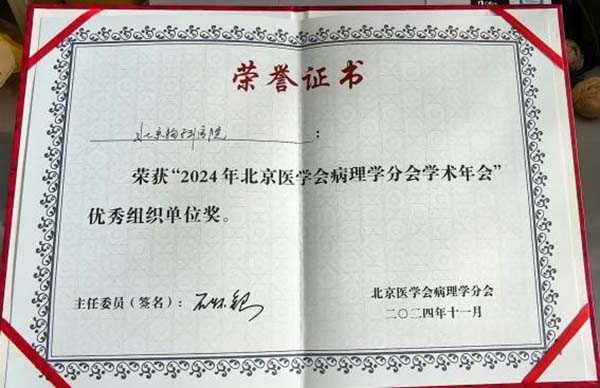 荣誉证书
北京胸科医院:
荣获“2024年北京医学会病理学分会学术年会”
优秀组织单位奖。
主任委员(签名): 石怀银
北京医学会病理学分会
二〇二四年十一月